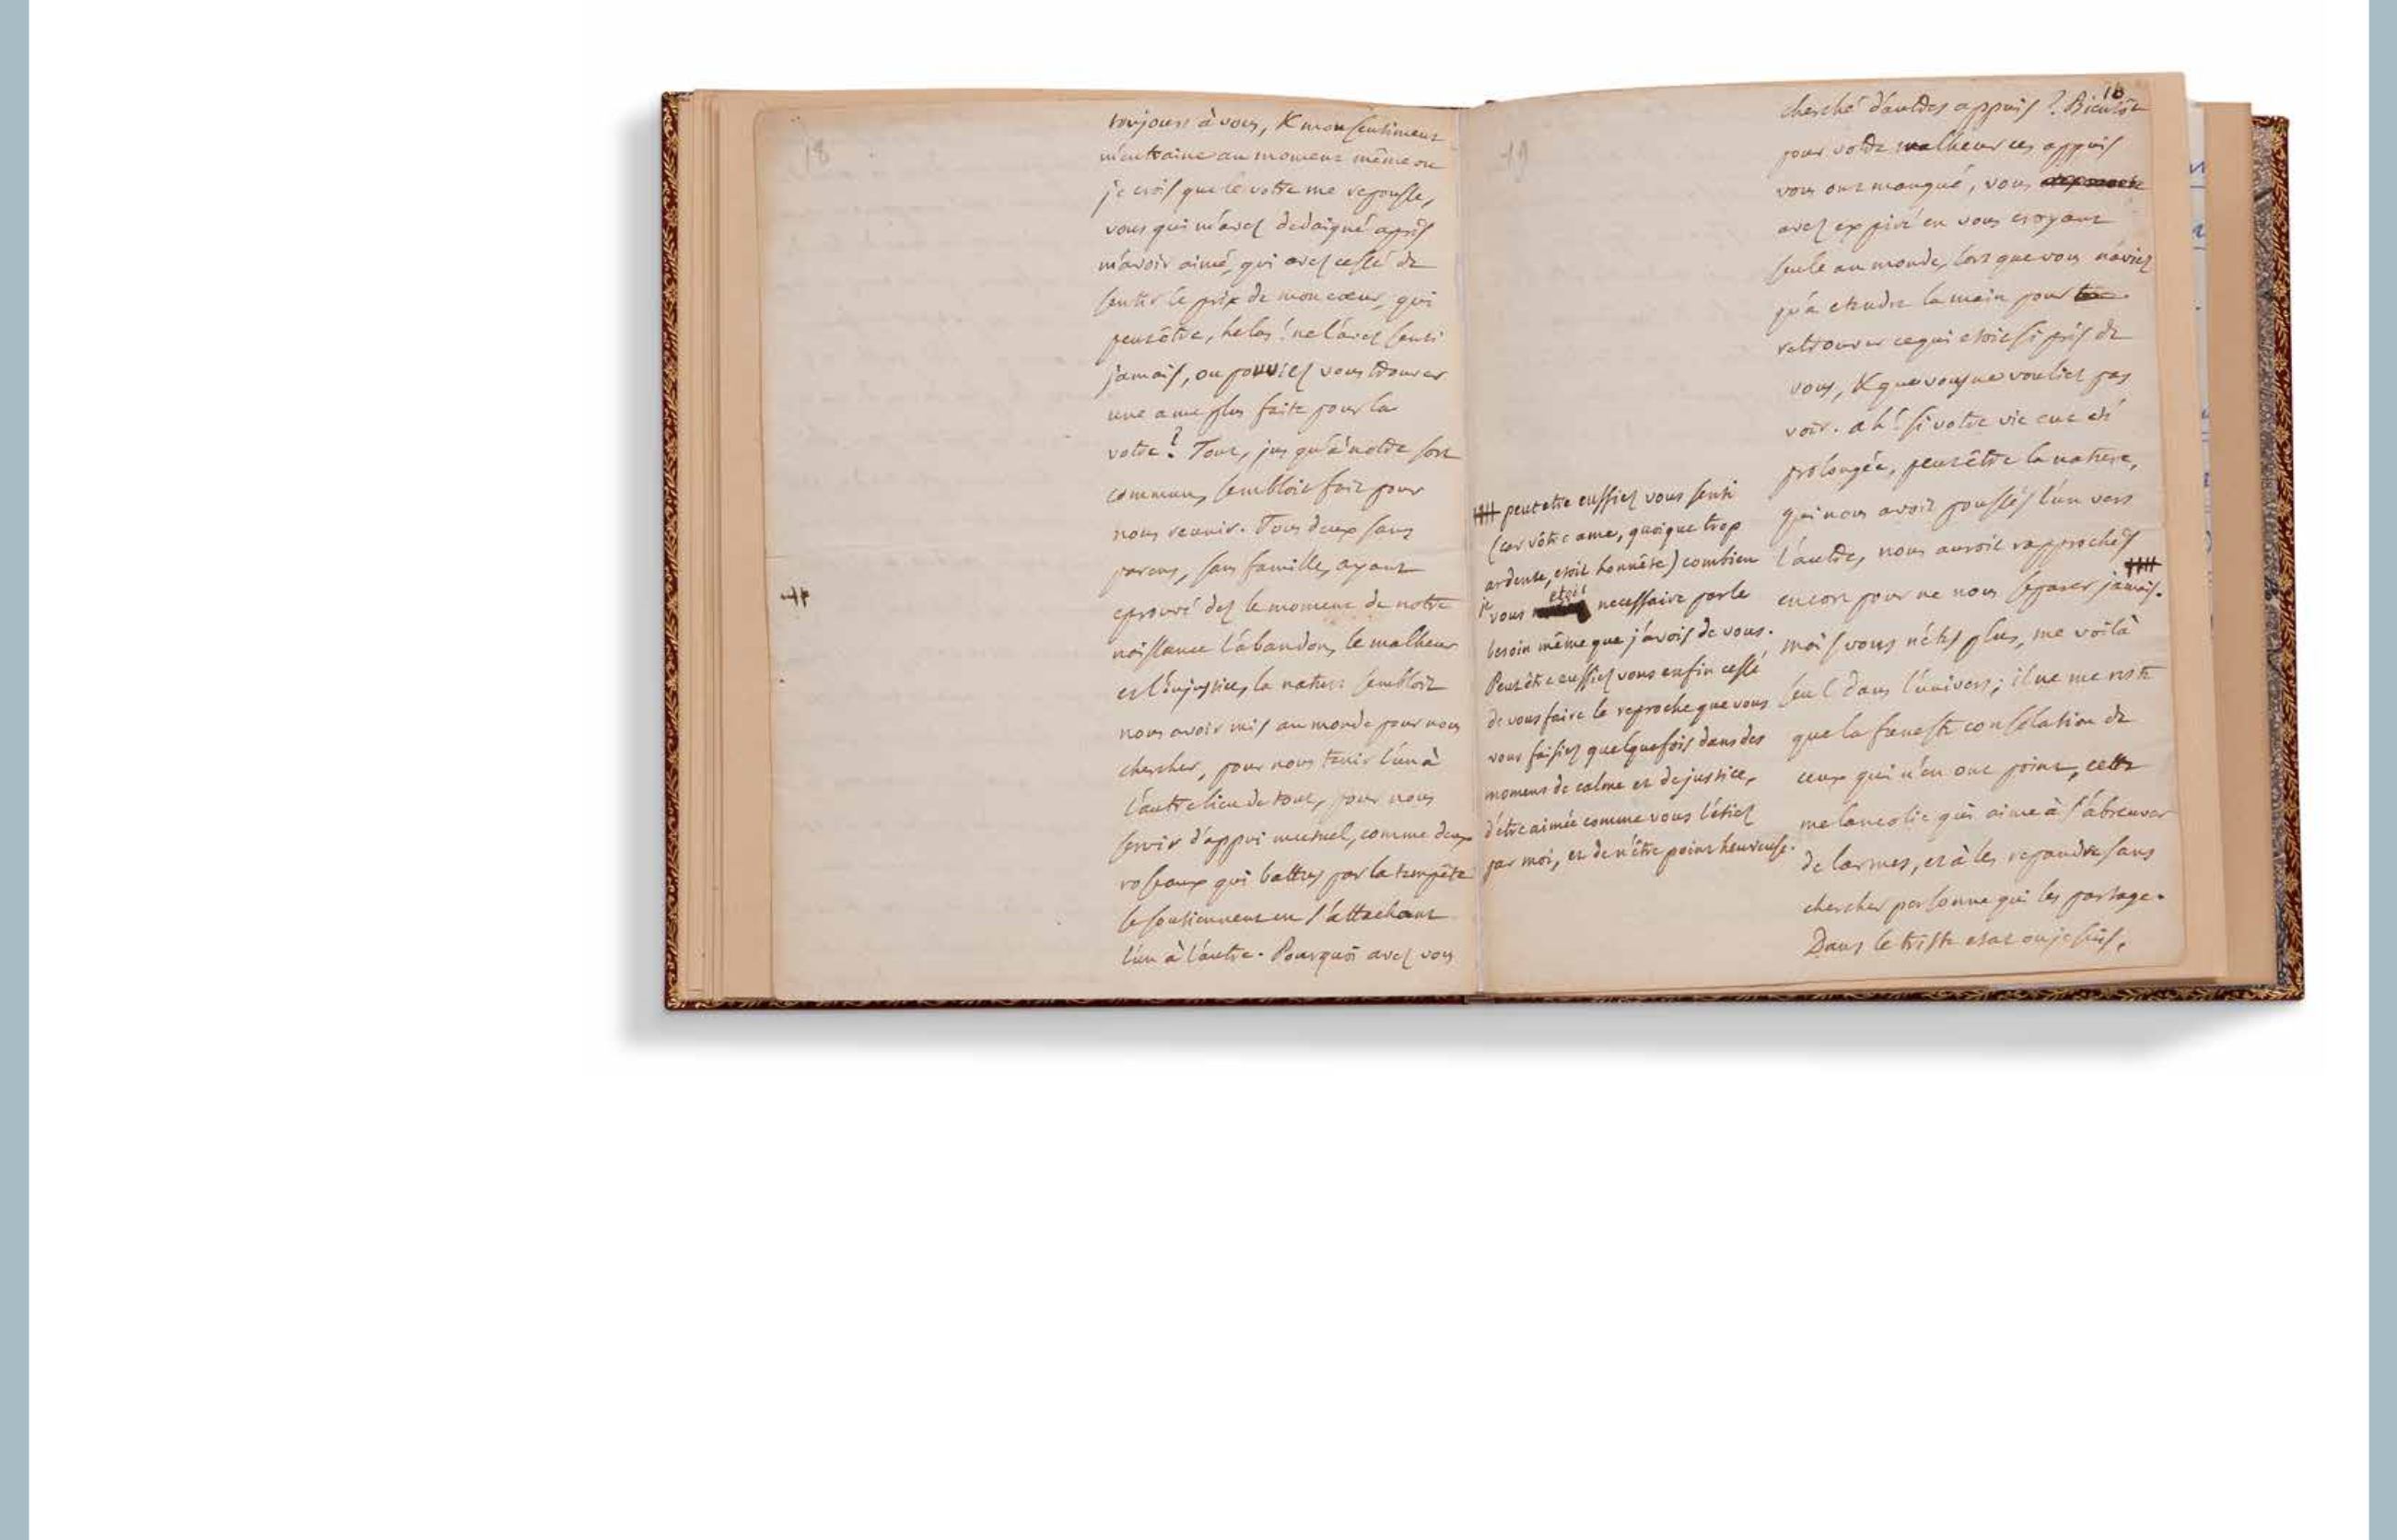 18
toujours à vous, & mon sentiment
m'entraine au moment même ou
je crois que le votre me repousse,
vous qui m'avez dedaigné après
m'avoir aimé, qui avez cessé de
sentir le prix de mon cœur, qui
peutêtre, helas! ne l'avez senti
jamais, ou pouviez vous trouver
une ame plus faite pour la
votre? Tout, jusqu'à notre sort
commun, sembloit fait pour
nous reunir. Tous deux sans
parens, sans famille, ayant
eprouvé dez le moment de notre
naissance l'abandon, le malheur
et l'injustice, la nature sembloit
nous avoir mis au monde pour nous
chercher, pour nous tenir l'un à
l'autre lieu de tout, pour nous
servir d'appui mutuel, comme deux
roseaux qui battus par la tempête
se soutiennent en s'attachant
l'un à l'autre. Pourquoi avez vous
19
10
cherché d'autres appuis? Bientôt
pour votre malheur ces appuis
vous ont manqué, vous
avez expiré en vous croyant
seule au monde, lors que vous n'aviez
qu'à etendre la main pour
retrouver ce qui etoit si près de
vous, & que vous ne vouliez pas
voir. ah! si votre vie eut eté
prolongée, peutêtre la nature,
qui nous avoit poussés l'un vers
l'autre, nous auroit rapprochés
encor pour ne nous separer jamais.
mais vous n'êtes plus, me voilà
seul dans l'univers; il ne me reste
que la funeste consolation de
ceux qui n'en ont point, cette
melancolie qui aime à s'abreuver
de larmes, et à les repandre sans
chercher personne qui les partage.
Dans le triste etat ou je suis,
peutetre eussiez vous senti
(car vôtre ame, quoique trop
ardente, etoit honnête) combien
je vous etois necessaire par le
besoin même que j'avois de vous.
Peutêtre eussiez vous enfin cessé
de vous faire le reproche que vous
vous faisiez quelquefois dans des
momens de calme et de justice,
d'être aimée comme vous l'étiez
par moi, et de n'être point heureuse.